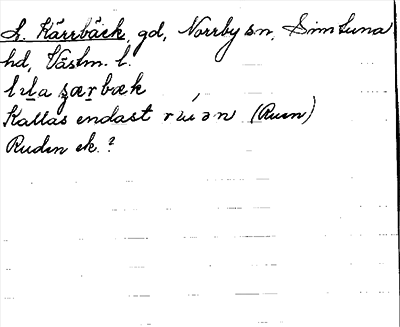 L. Kärrbäck, gd, Norrby sn, Simtuna
hd, Västm. l.
lıla ʂærbæk
Kallas endast rʉ́ən (Ruen)
Ruden ek.?